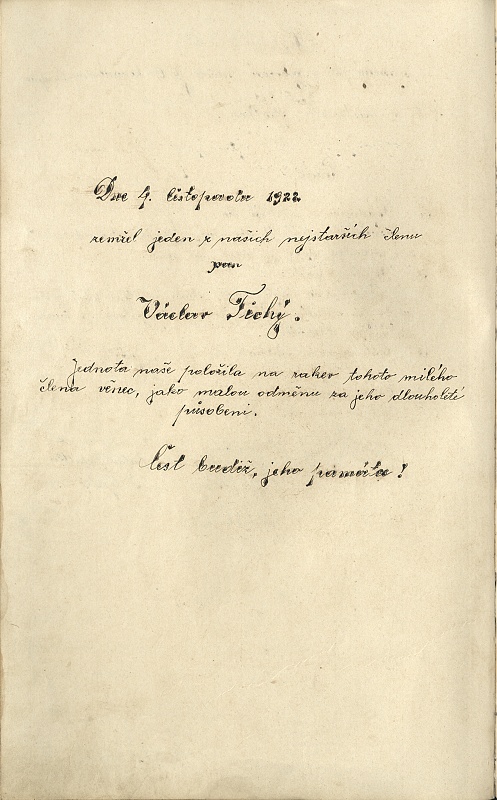 Dne 4. listopadu 1922
zemřel jeden z našich nejstarších členu
pan
Václav Tichý.
Jednota naše položila na rakev tohoto milého
člena věnec, jako malou odměnu za jeho dlouholeté
působeni.
Čest budiž, jeho památce!